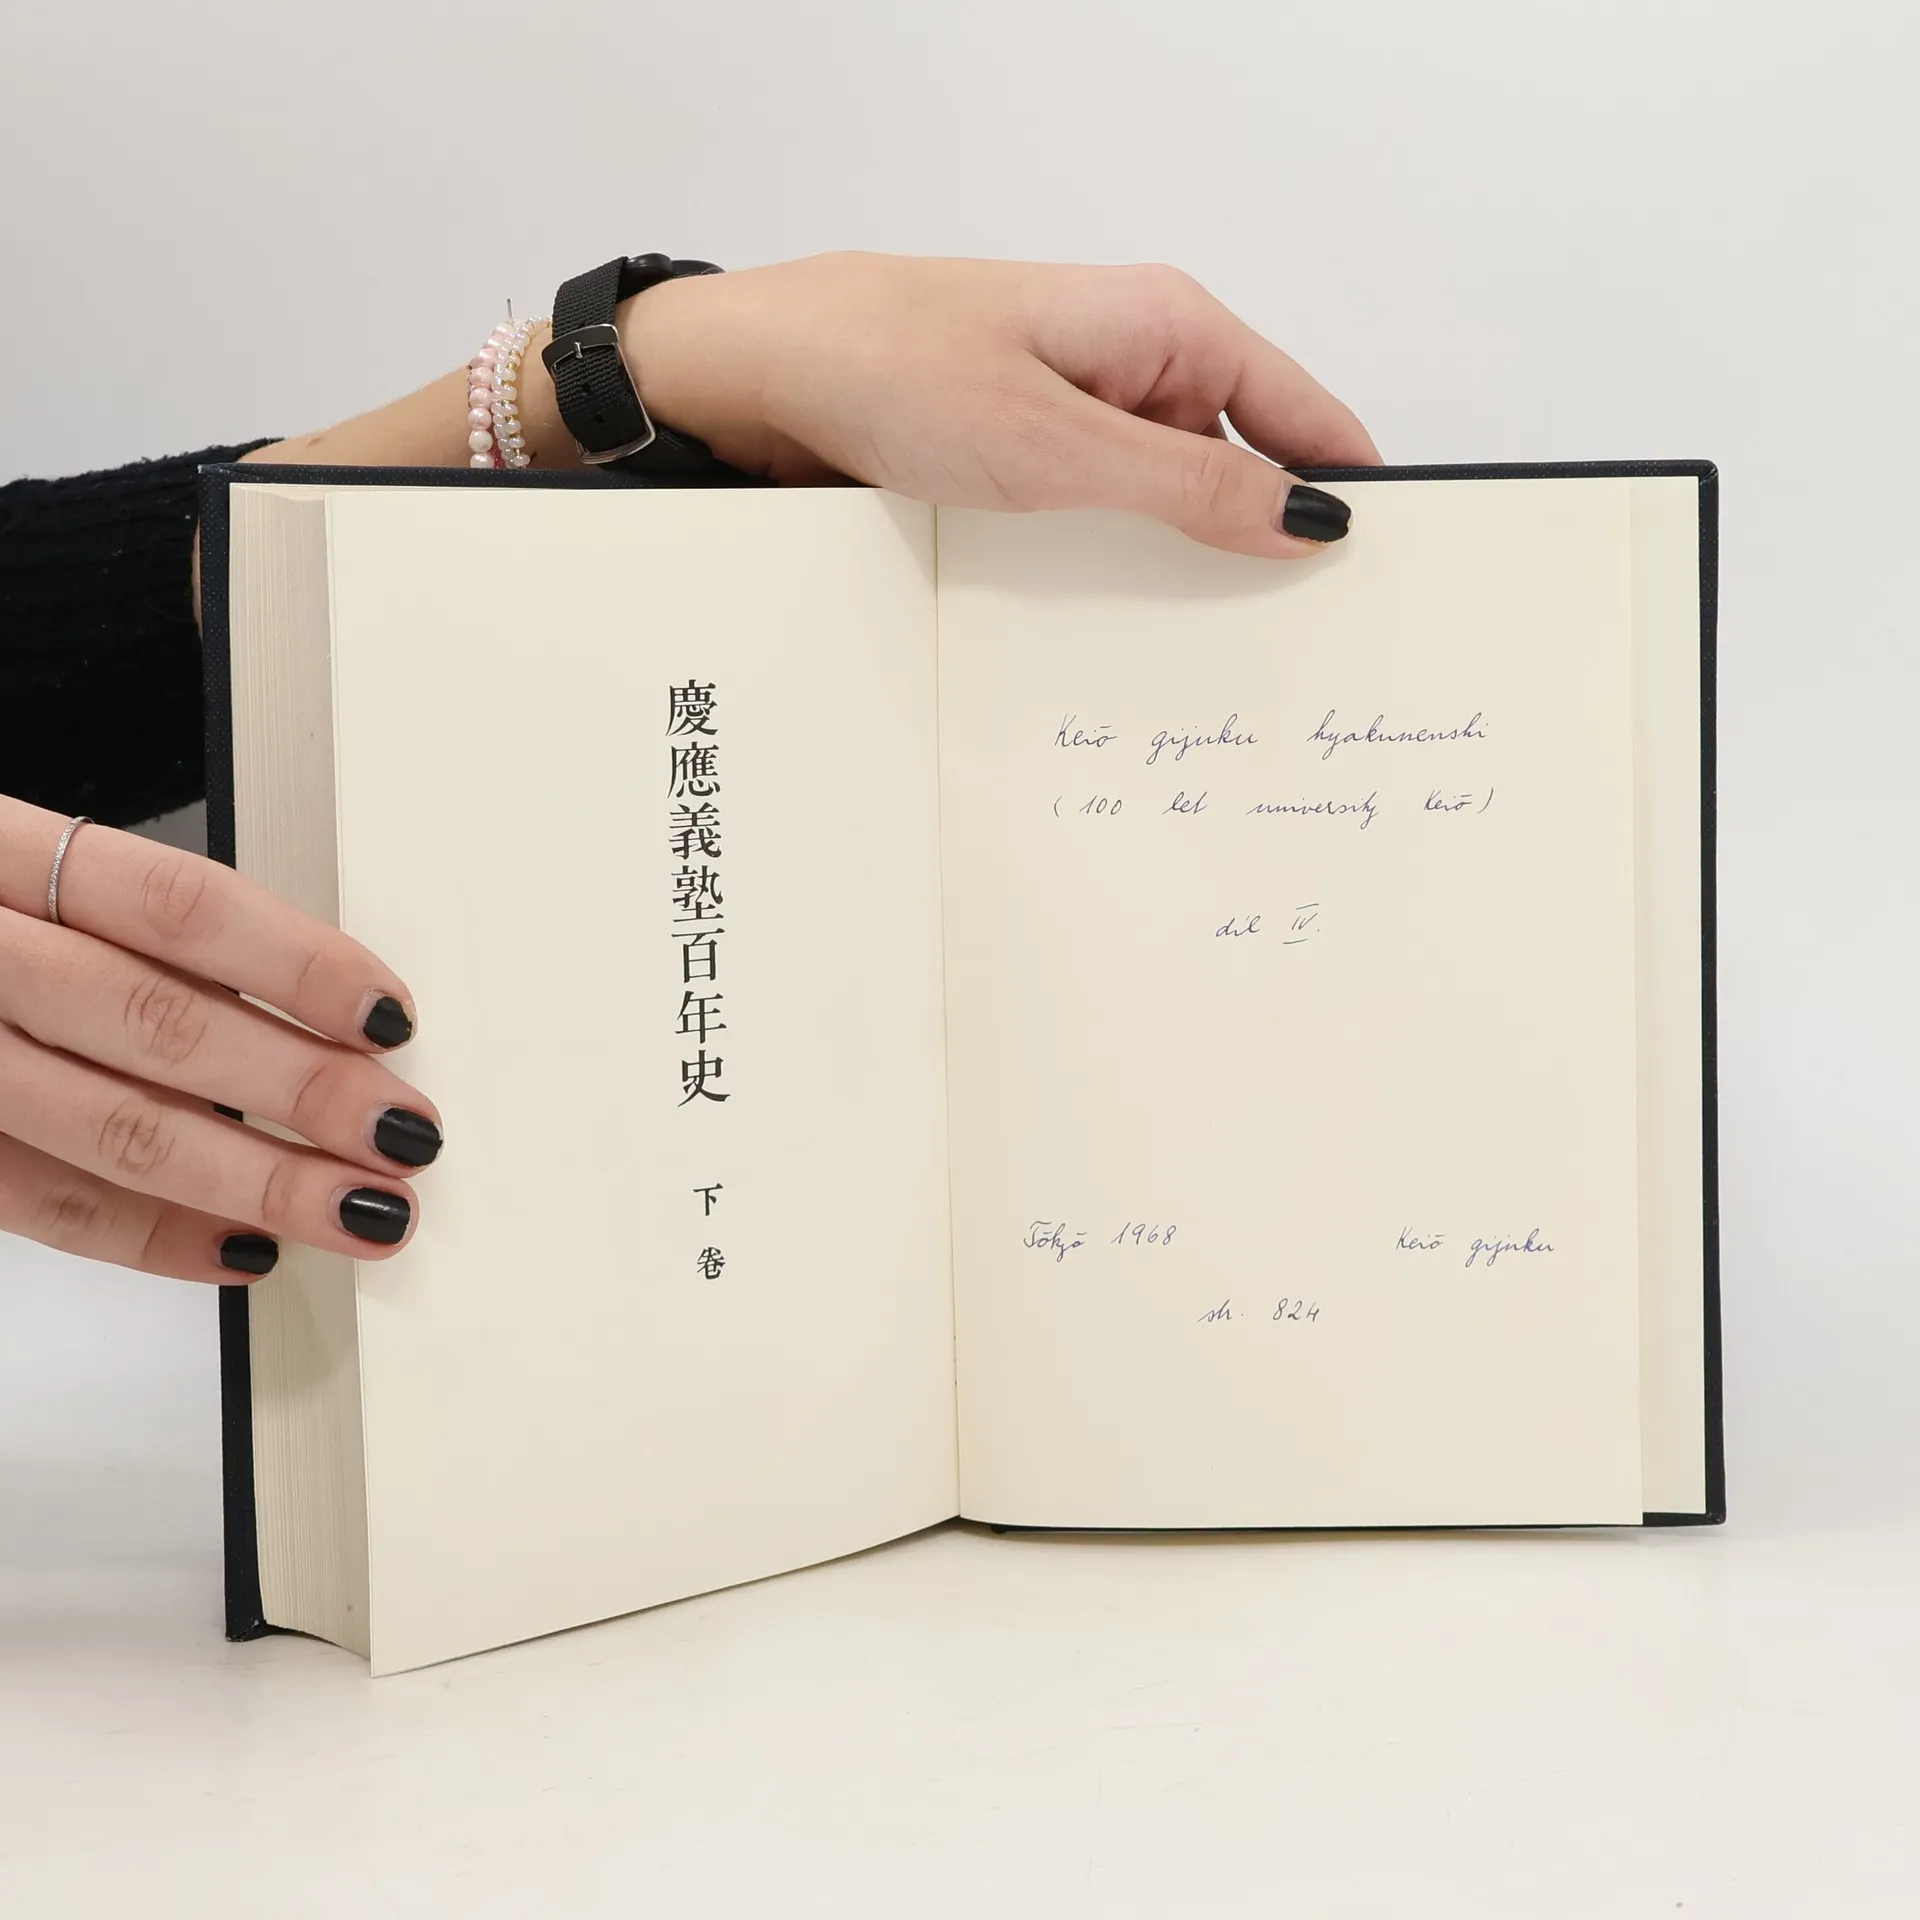 慶應義塾百年史
下卷
Keiō gijuku hyakunenshi
(100 let university Keiō)
díl IV.
Tōkyō 1968 Keiō gijuku
str. 824